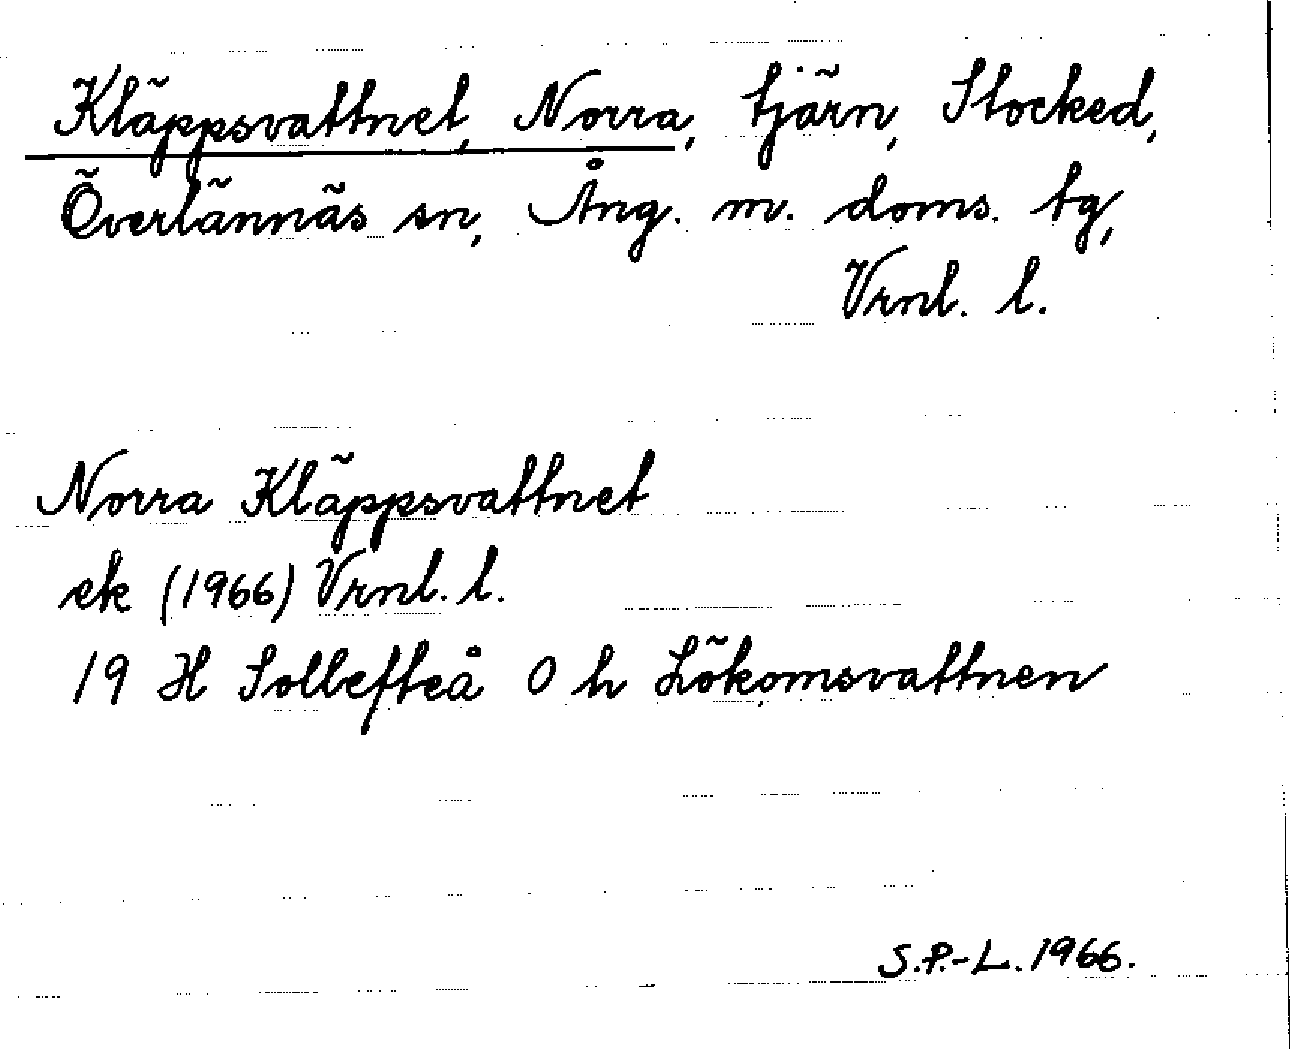 Kläppsvattnet, Norra, tjärn, Stocked,
Överlännäs sn, Ång. m. doms. tg,
Vrnl. l.
Norra Kläppsvattnet
ek (1966) Vrnl. l.
19 H Sollefteå 0 h Lökomsvattnen
S.P.-L. 1966.